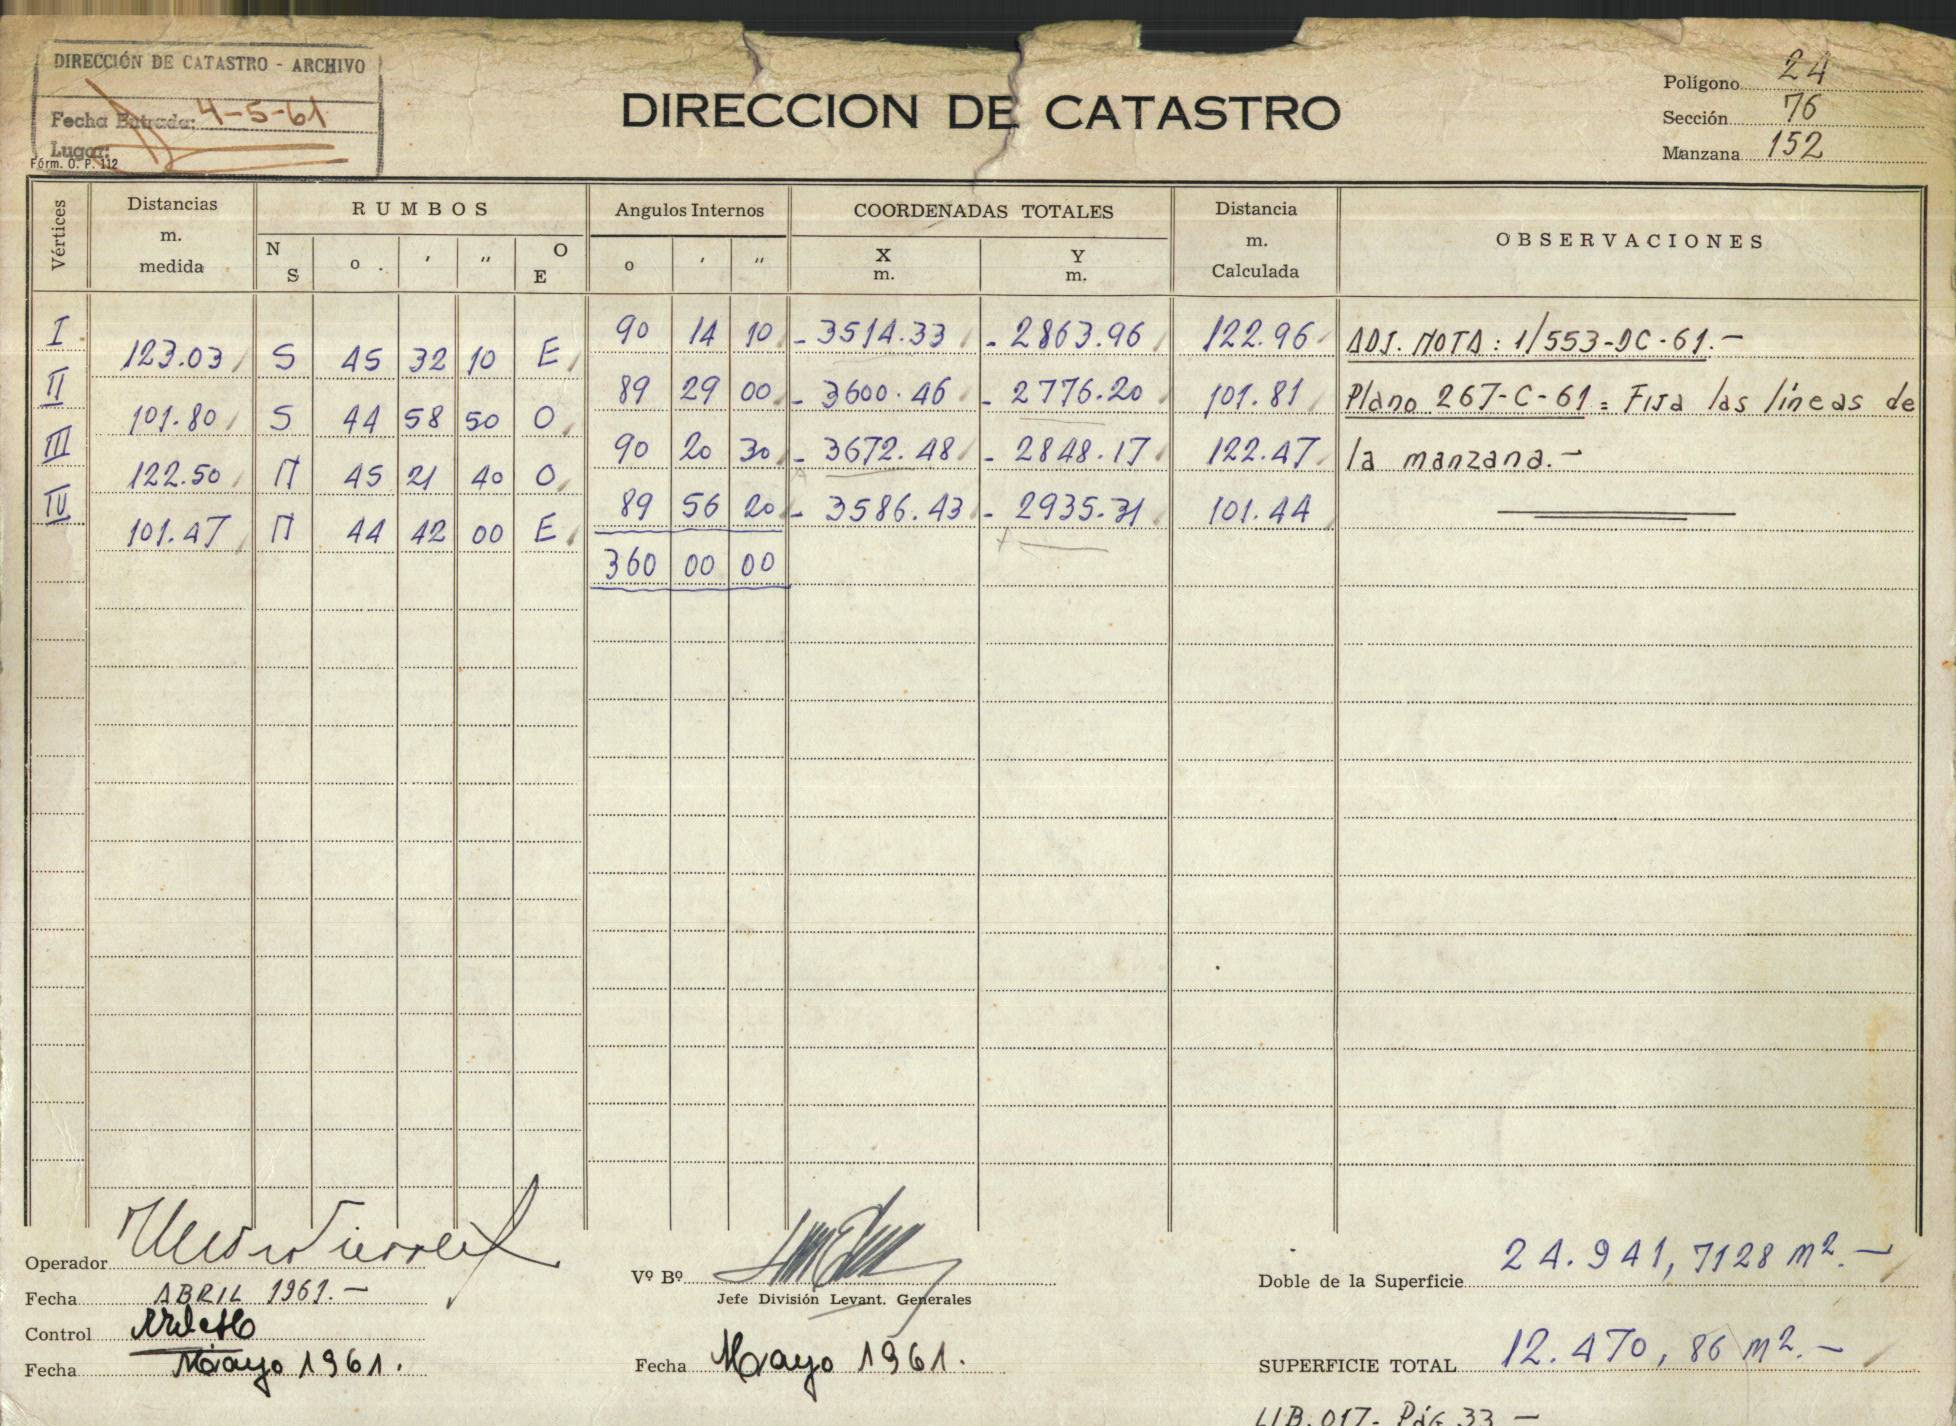 DIRECCIÓN DE CATASTRO - ARCHIVO
Fecha Entrada: 4-5-61
Lugar:
Fórm. O. P. 112
DIRECCION DE CATASTRO
Polígono 24
Sección 76
Manzana 152
Vértices Distancias m. medida RUMBOS Angulos Internos COORDENADAS TOTALES Distancia m. Calculada OBSERVACIONES
N S o ' " O E o ' " X m. Y m.
I 90 14 10 - 3514.33 - 2863.96 122.96 ADJ. NOTA: 1/553-DC-61.-
123.03 S 45 32 10 E
II 89 29 00 - 3600.46 - 2776.20 101.81 Plano 267-C-61 = Fija las líneas de
101.80 S 44 58 50 O
III 90 20 30 - 3672.48 - 2848.17 122.47 la manzana.-
122.50 N 45 21 40 O
IV 89 56 20 - 3586.43 - 2935.31 101.44
101.47 N 44 42 00 E
360 00 00
Operador
Fecha ABRIL 1961.-
Control
Fecha Mayo 1961.
Vº Bº
Jefe División Levant. Generales
Fecha Mayo 1961.
Doble de la Superficie 24.941,7128 m2.-
SUPERFICIE TOTAL 12.470,86 m2.-
LIB. 017- Pág 33 -